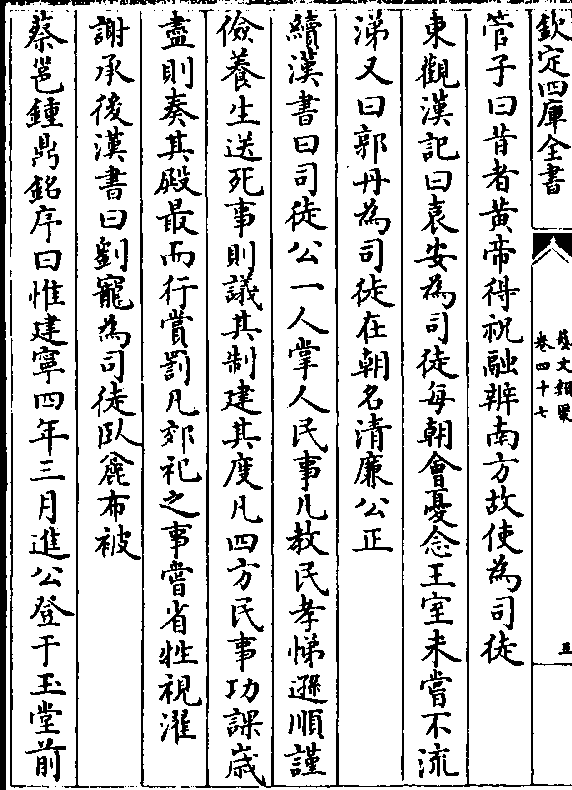 欽定四庫全書
藝文類聚
卷四十七
五
管子曰昔者黃帝得祝融辨南方故使為司徒
東觀漢記曰袁安為司徒每朝會憂念王室未嘗不流
涕又曰郭丹為司徒在朝名清廉公正
續漢書曰司徒公一人掌人民事凡教民孝悌遜順謹
儉養生送死事則議其制建其度凡四方民事功課歲
盡則奏其殿最而行賞罰凡郊祀之事嘗省牲視濯
謝承後漢書曰劉寵為司徒臥麄布被
蔡邕鍾鼎銘序曰惟建寧四年三月進公登于玉堂前